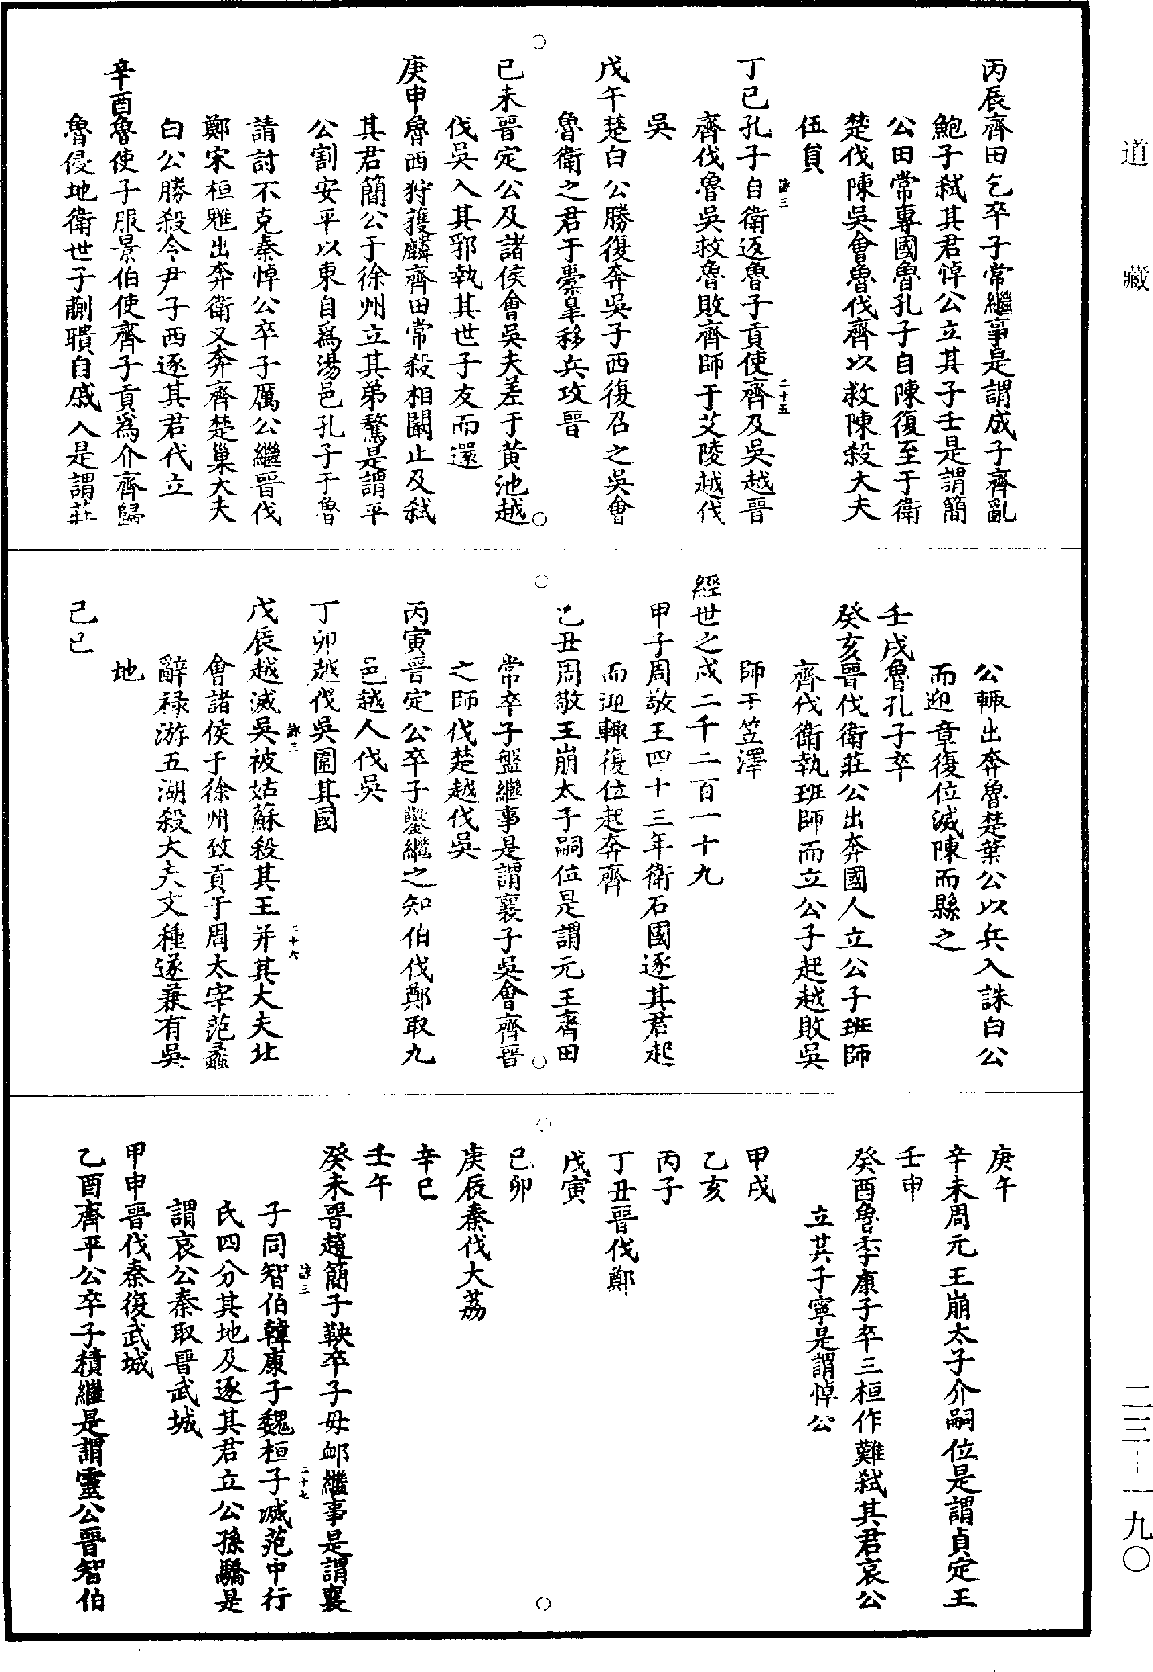 道藏
丙辰齊田乞卒子常繼事是謂成子齊亂
鮑子弒其君悼公立其子壬是謂簡
公田常專國魯孔子自陳復至于衛
楚伐陳吳會魯伐齊以救陳殺大夫
伍員
丁巳孔子自衛返魯子貢使齊及吳越晉
齊伐魯吳救魯敗齊師于艾陵越伐
吳
戊午楚白公勝復奔吳子西復召之吳會
魯衛之君于橐臯移兵攻晉
己未晉定公及諸侯會吳夫差于黃池越
伐吳入其郛執其世子友而還
庚申魯西狩獲麟齊田常殺相闞止及弒
其君簡公于徐州立其弟驁是謂平
公割安平以東自爲湯邑孔子于魯
請討不克秦悼公卒子厲公繼晉伐
鄭宋桓雎出奔衛又奔齊楚巢大夫
白公勝殺令尹子西逐其君代立
辛酉魯使子服景伯使齊子貢爲介齊歸
魯侵地衛世子蒯聵自戚入是謂莊
公輒出奔魯楚葉公以兵入誅白公
而迎章復位滅陳而縣之
壬戌魯孔子卒
癸亥晉伐衛莊公出奔國人立公子班師
齊伐衛執班師而立公子起越敗吳
師于笠澤
經世之戌二千二百一十九
甲子周敬王四十三年衛石國逐其君起
而迎輒復位起奔齊
乙丑周敬王崩太子嗣位是謂元王齊田
常卒子盤繼事是謂襄子吳會齊晉
之師伐楚越伐吳
丙寅晉定公卒子鑿繼之知伯伐鄭取九
邑越人伐吳
丁卯越伐吳圍其國
戊辰越滅吳被姑蘇殺其王并其大夫北
會諸侯于徐州致貢于周太宰范蠡
辭祿游五湖殺大夫文種遂兼有吳
地
己巳
庚午
辛未周元王崩太子介嗣位是謂貞定王
壬申
癸酉魯季康子卒三桓作難弒其君哀公
立其子寧是謂悼公
甲戌
乙亥
丙子
丁丑晉伐鄭
戊寅
己卯
庚辰秦伐大荔
辛巳
壬午
癸未晉趙簡子鞅卒子毋卹繼事是謂襄
子同智伯韓康子魏桓子滅范中行
氏四分其地及逐其君立公孫驕是
謂哀公秦取晉武城
甲申晉伐秦復武城
乙酉齊平公卒子積繼是謂靈公晉智伯
二三-一九〇